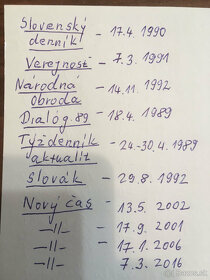 Slovenský
denník - 17.4.1990
Verejnosť - 7.3.1991
Národná
obroda - 14.11.1992
Dialóg.89 - 18.4.1989
Týždenník
aktualít - 24-30.4.1989
slovák - 29.8.1992
Nový čas - 13.5.2002
-11- 17.9.2001
-11- 17.1.2006
-11- 7.3.2016